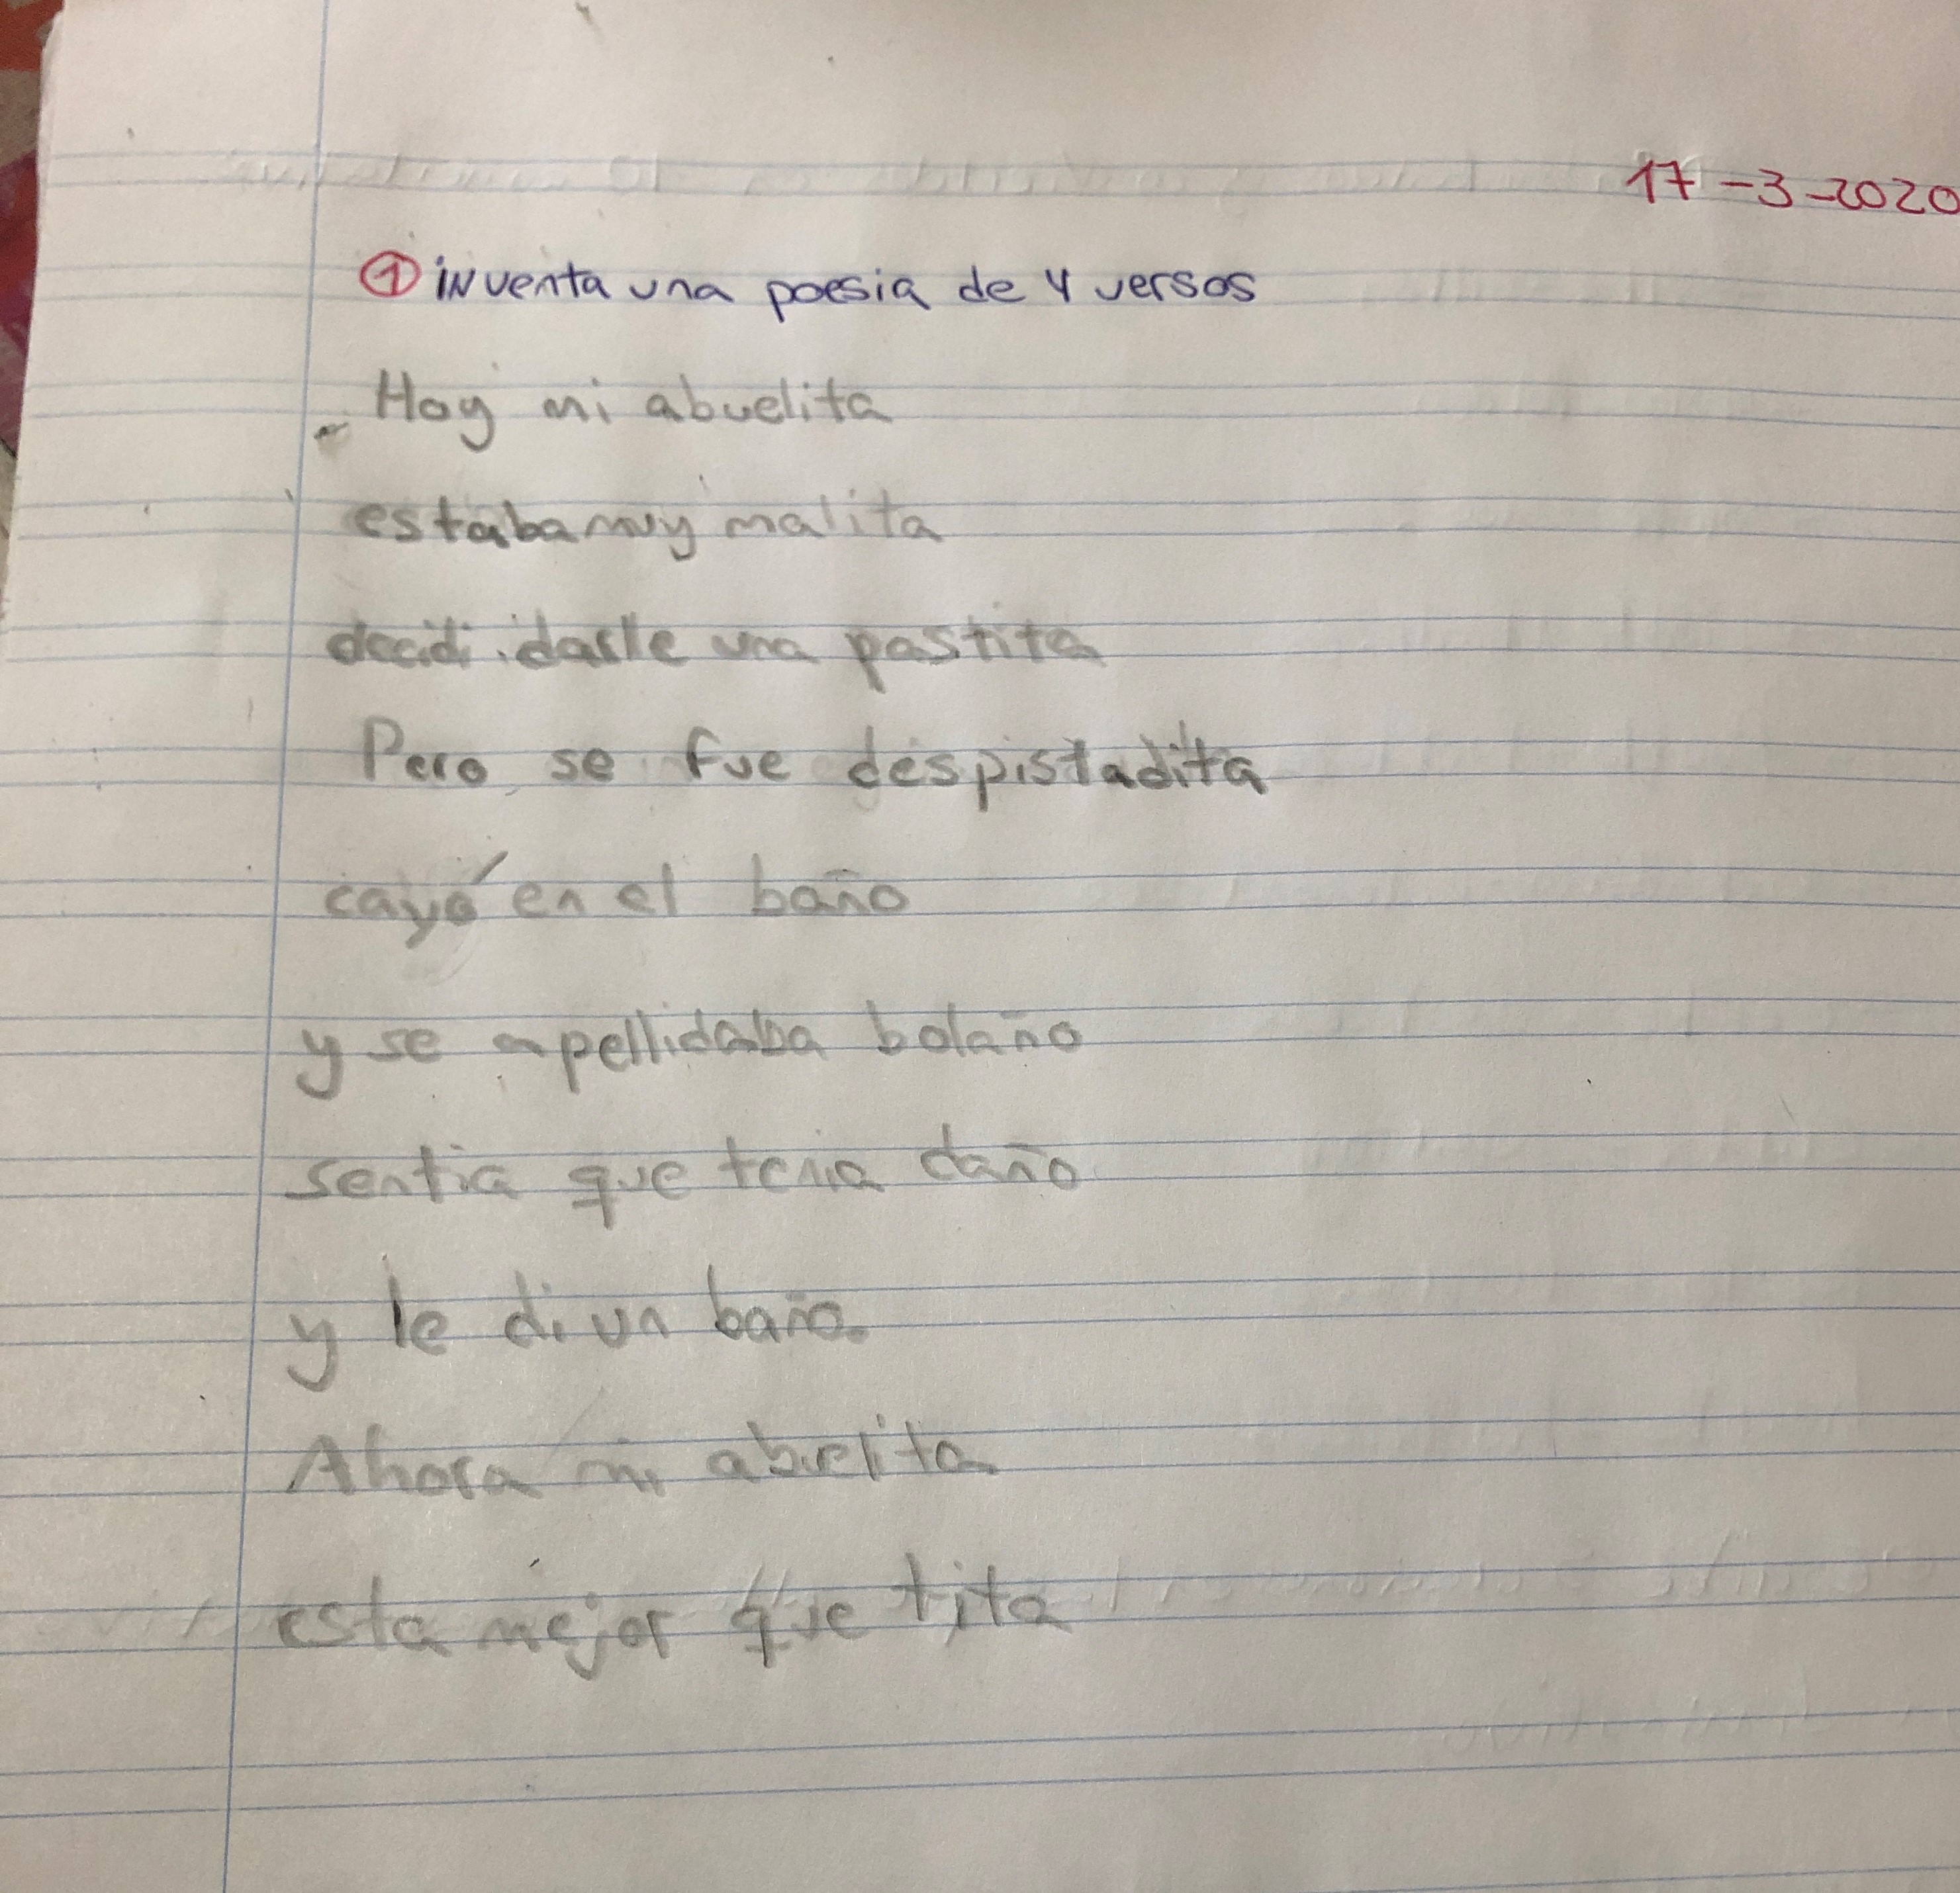 17-3-2020
① inventa una poesia de 4 versos
Hoy mi abuelita
estaba muy malita
decidi darle una pastita
Pero se fue despistadita
cayó en el baño
y se apellidaba bolaño
sentia que tenia daño
y le di un baño.
Ahora mi abuelita
esta mejor que tita